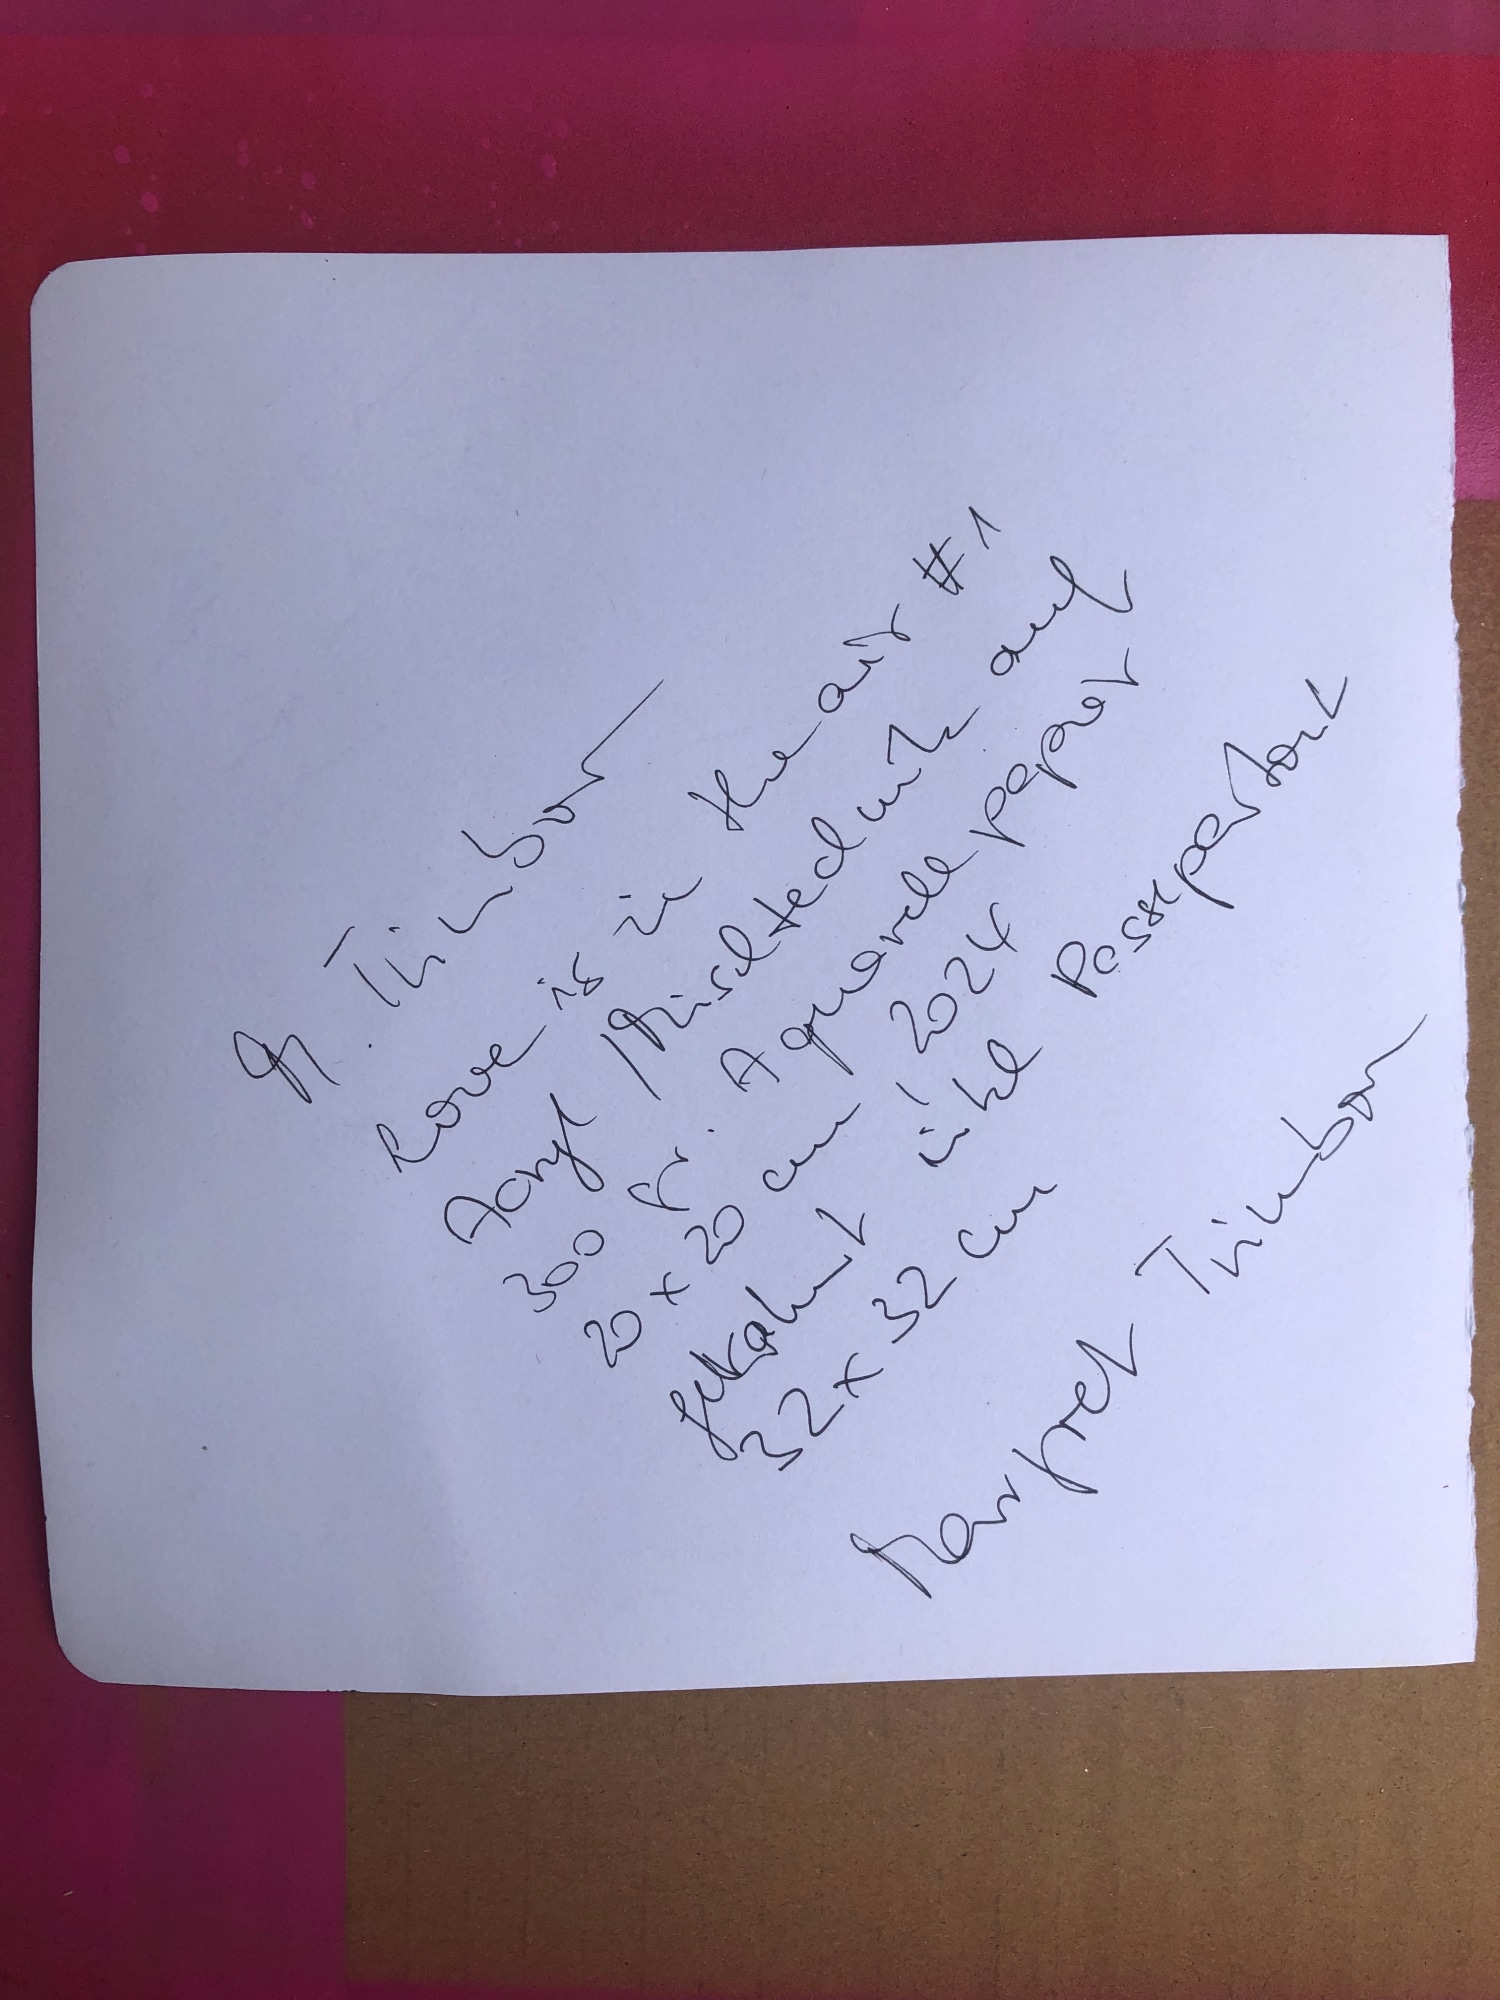 M. Timbor
Love is in the air #1
Acryl / Mischtechnik auf
300 gr. Aquarellpapier
20 x 20 cm / 2024
gerahmt inkl Passepartout
32 x 32 cm
Margret Timbor